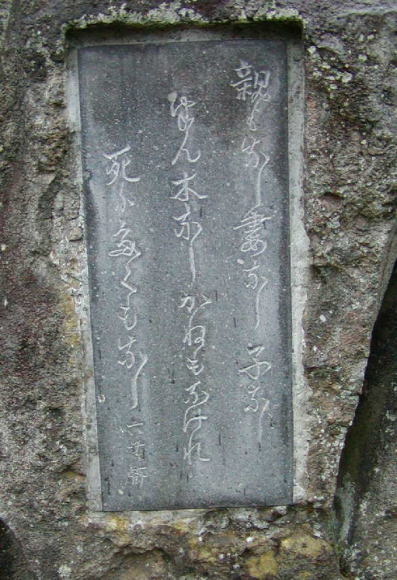 親もなし妻なし子なし
はん木なしかねもなけれ
死にたくもなし 六無斎